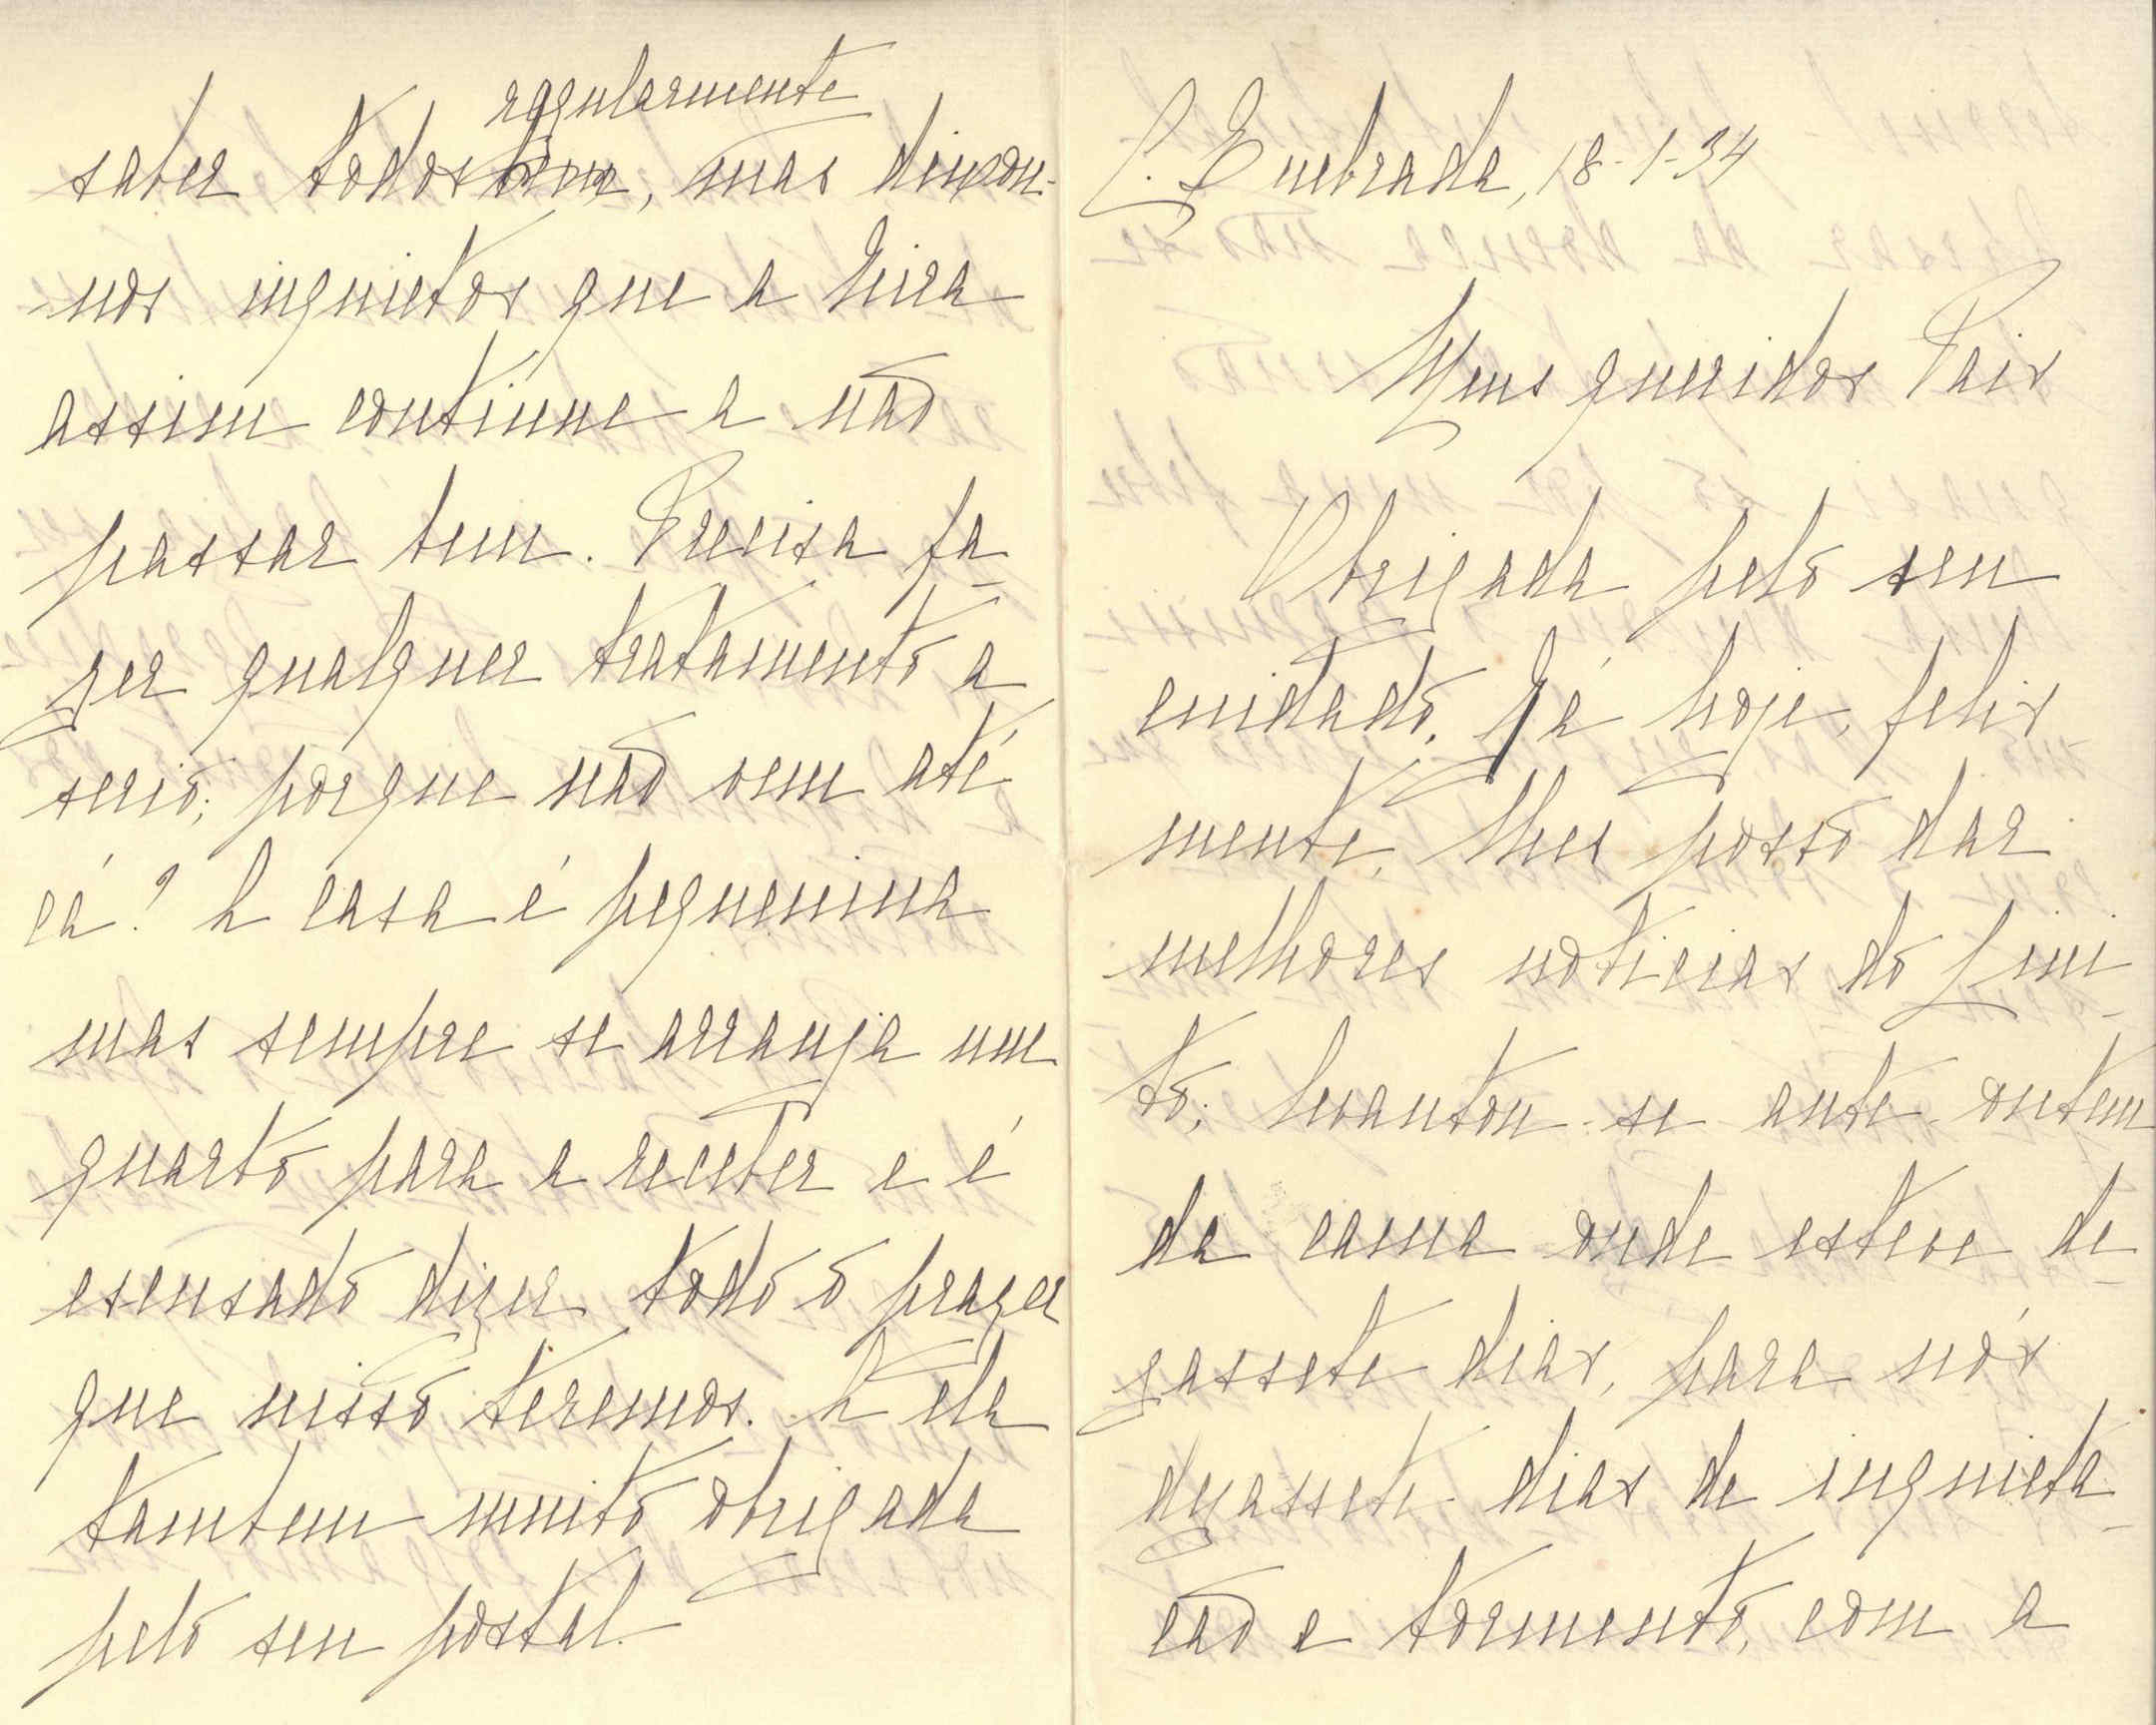 C. Quebrada, 18-1-34
Meus queridos Pais
Obrigada pelo seu
cuidado. Já hoje, feliz-
mente, lhes posso dar
melhores noticias do Lini-
to; levantou-se ante-ontem
da cama onde esteve de-
zassete dias, para nós
dezassete dias de inquieta-
ção e tormento, com a
regularmente
saber todos bem, mas deixou-
-nos inquietos que a
assim continue a não
passar bem. Precisa fa-
zer qualquer tratamento a
serio; porque não vem até
cá? A casa é pequenina
mas sempre se arranja um
quarto para a receber e é
escusado dizer todo o prazer
que nisso teremos. A ela
tambem muito obrigada
pelo seu postal.